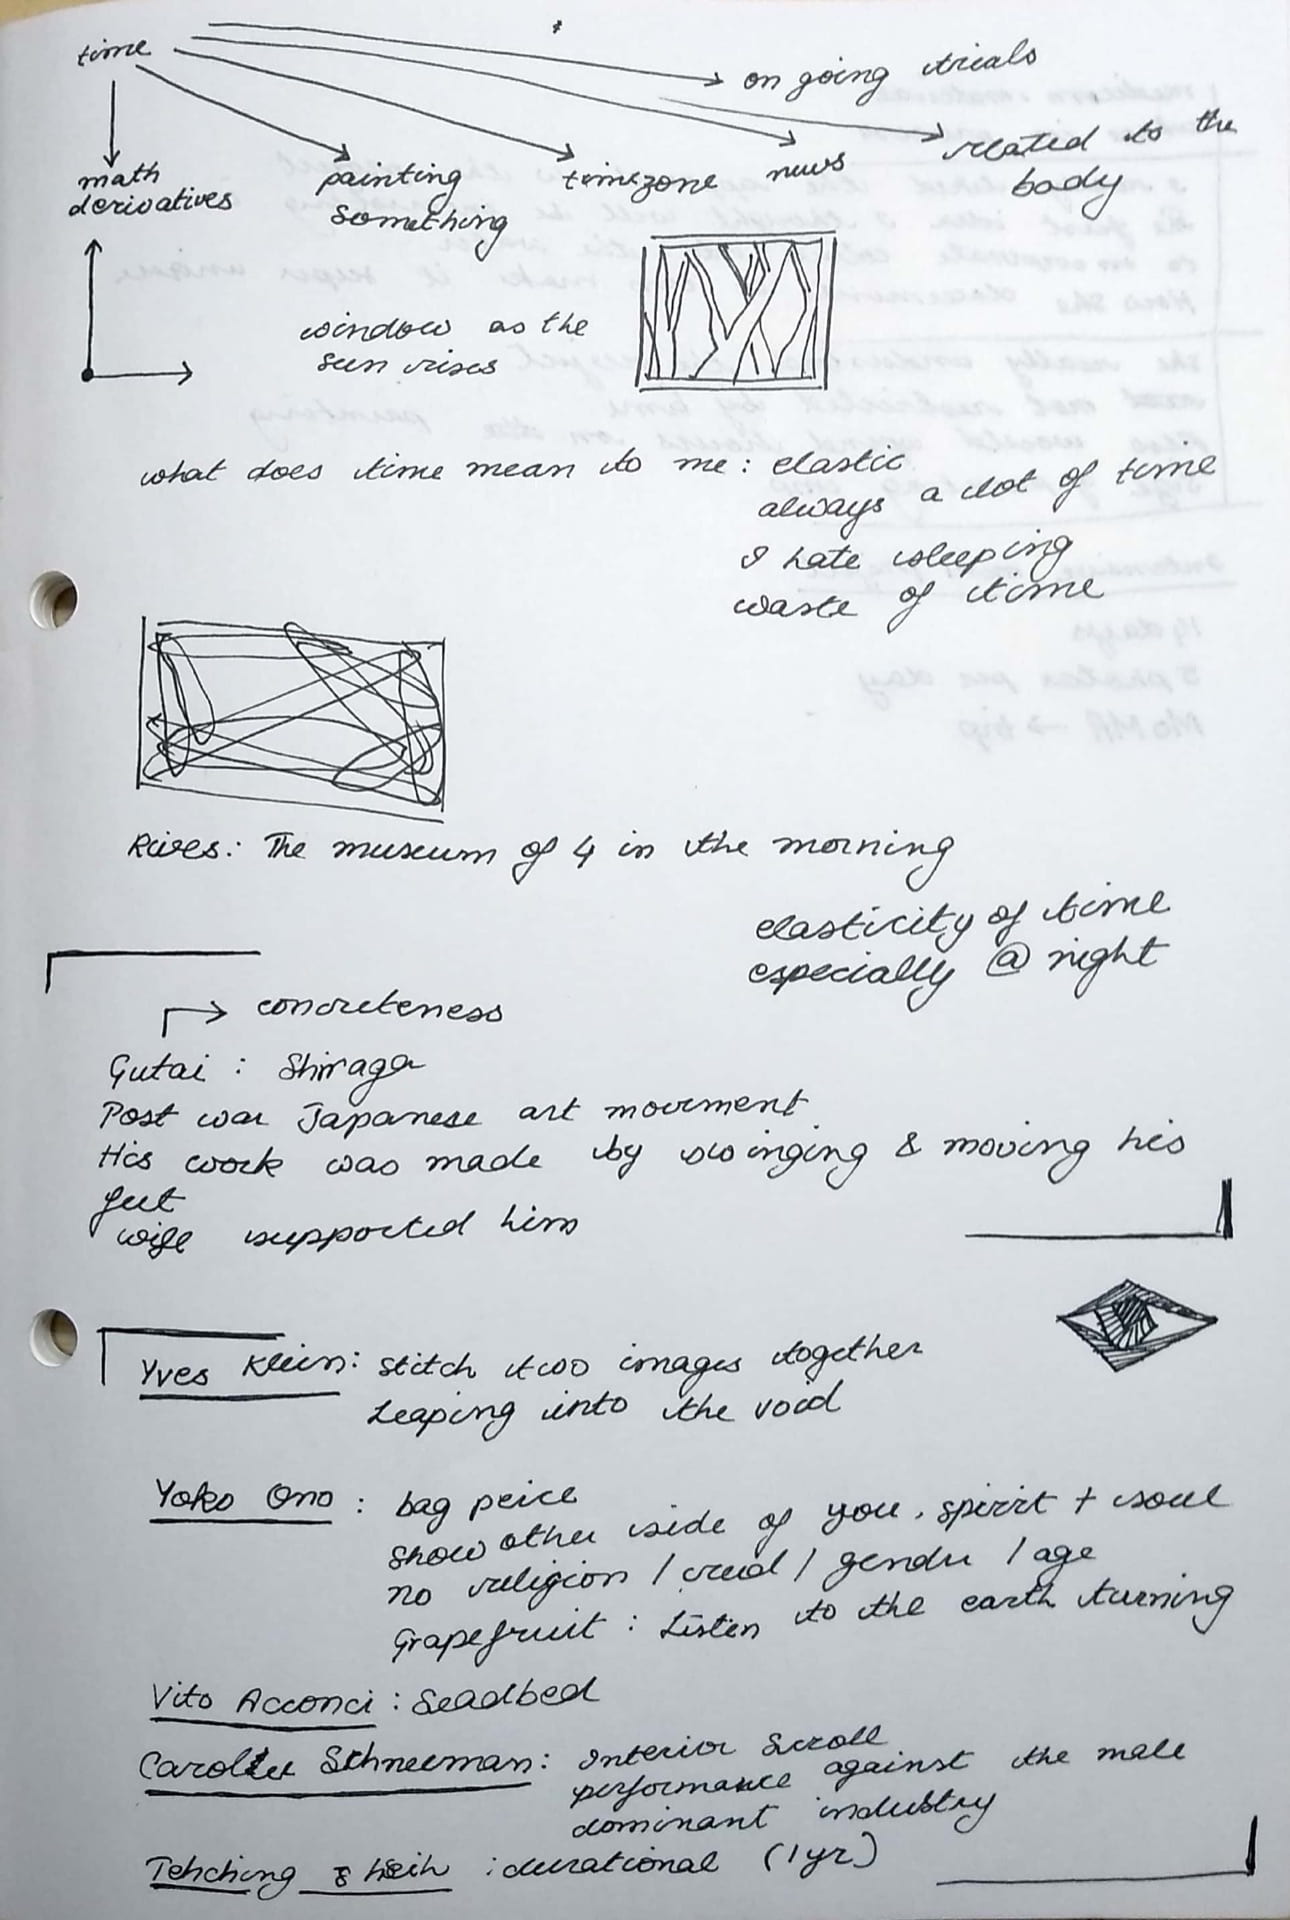 time
on going trials
math
derivatives
painting
something
timezone
news
related to the
body
window as the
sun rises
what does time mean to me: elastic
always a lot of time
I hate sleeping
waste of time
Rives: The museum of 4 in the morning
elasticity of time
especially @ night
concreteness
Gutai : Shiraga
Post war Japanese art movement
His work was made by swinging & moving his
feet
wife supported him
Yves Klein: stitch two images together
Leaping into the void
Yoko Ono : bag peice
show other side of you, spirit + soul
no religion / creed / gender / age
Grapefruit : Listen to the earth turning
Vito Acconci : Seadbed
Carolee Schneeman: Interior Scroll
performance against the male
dominant industry
Tehching Hseih : durational (1yr)